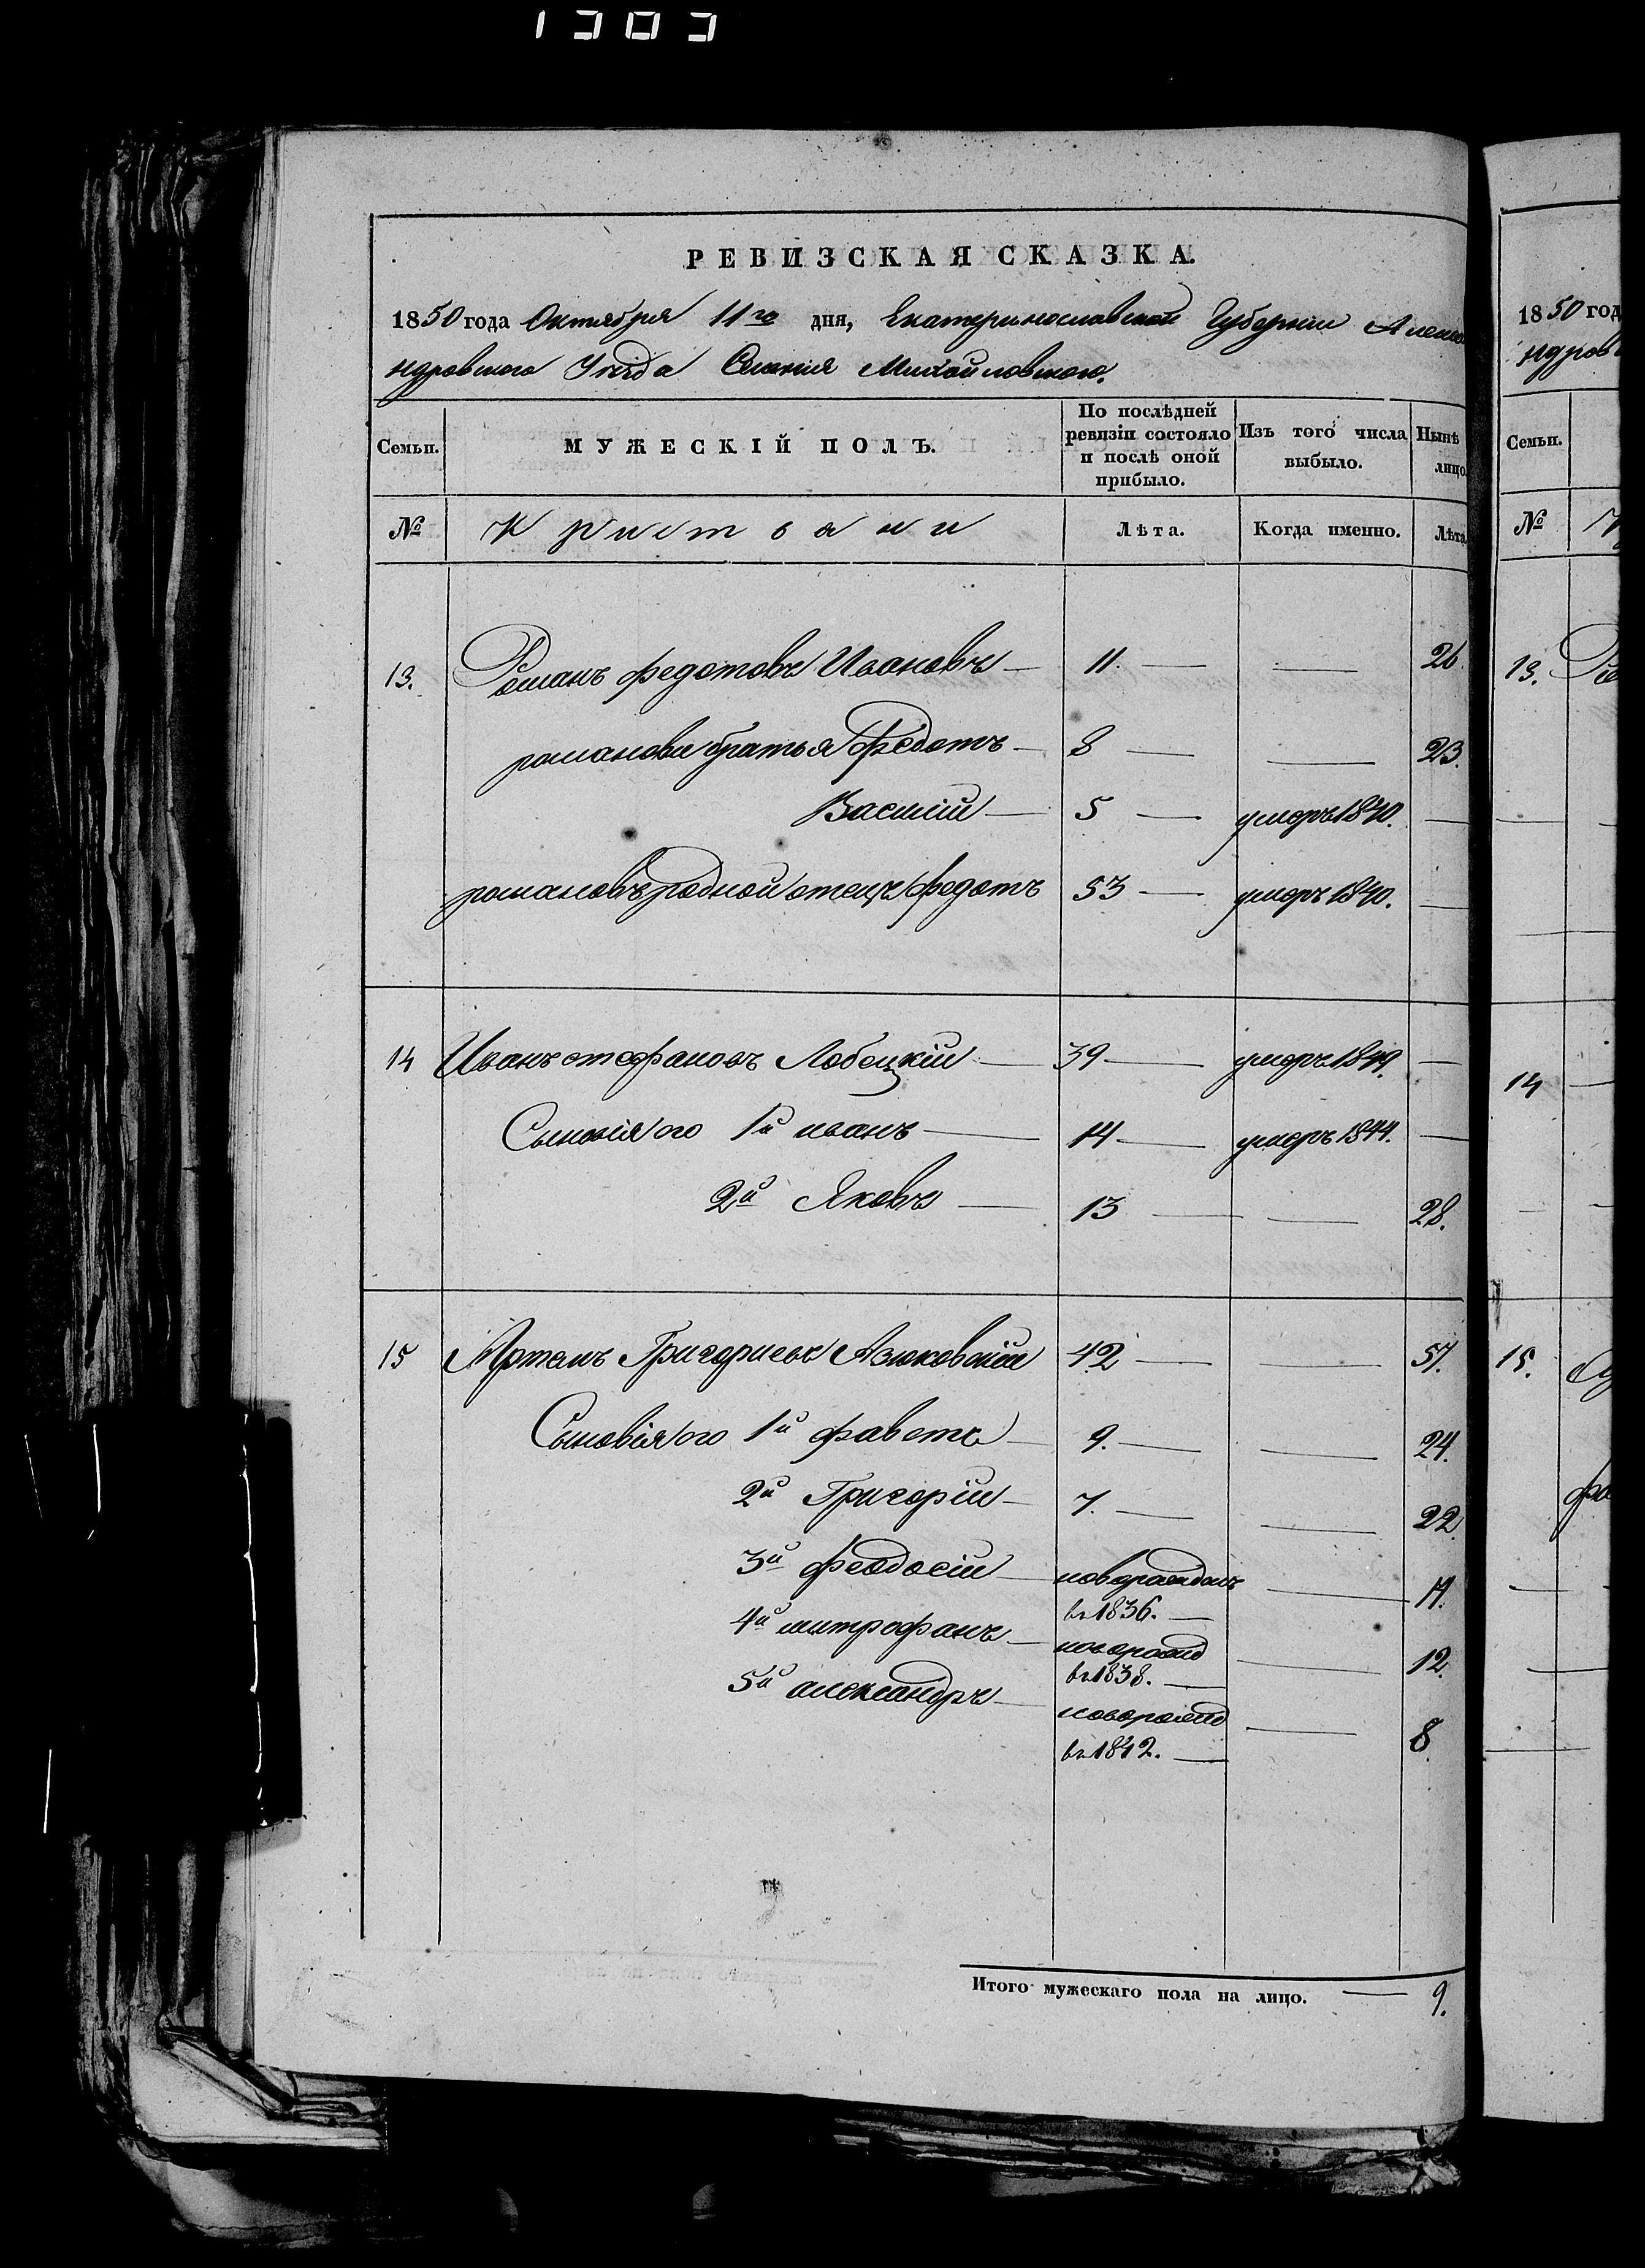 1303
РЕВИЗСКАЯ СКАЗКА.
1850 года Октября 11го дня, Екатеринославской Губернии Алекса
ндровского Уезда Селения Михайловского.
Семьи. МУЖЕСКІЙ ПОЛЪ. По послѣдней ревизіи состояло и послѣ оной прибыло. Изъ того числа выбыло. Нынѣ лицо
№ Кристьани Лѣта. Когда именно. Лѣта
13. Романъ федотовъ Ивановъ 11. 26
романови братья Федотъ 8 23.
Василій 5 умеръ 1840.
романовъ родной отецъ федотъ 53 умеръ 1840.
14 Иванъ стефановъ Лобецкій 39 умеръ 1849.
Сыновія его 1й иванъ 14 умеръ 1844.
2й Яковъ 13 28.
15 Артемъ Григориевъ Азюковскій 42 57.
Сыновія его 1й фавстъ 9. 24.
2й Григорій 7. 22
3й феодосій новорожденъ 14.
въ 1836.
4й митрофанъ новорожд 12.
въ 1838.
5й александръ новорожд 8
въ 1842.
Итого мужескаго пола на лицо. 9.
1850 год
ндровс
Семьи.
№
13.
14
15.